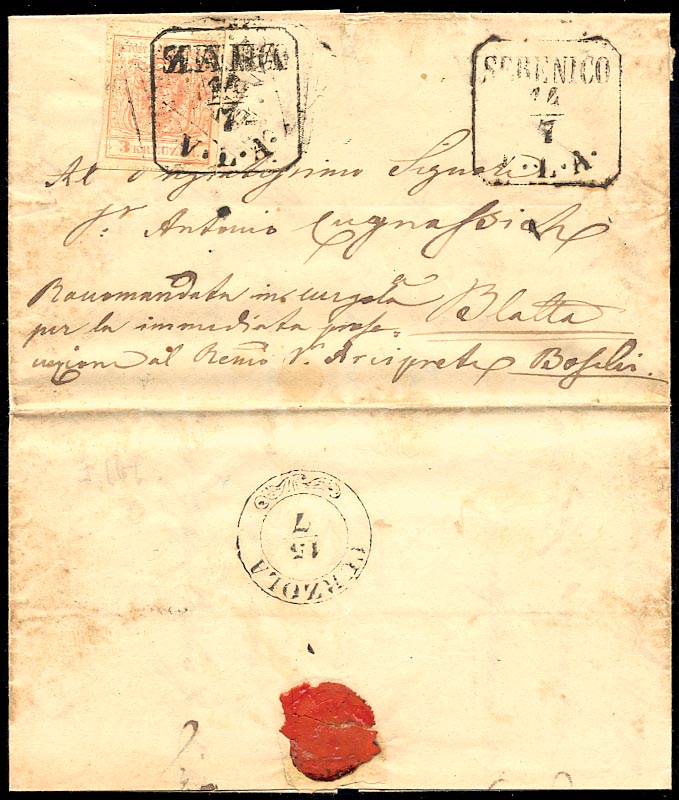 ZARA
14
7
V.L.A.
3 KREUZER
SEBENICO
14
7
V.L.A.
Al Signor
Sr Antonio
Raccomandata in Curzola
Blatta
per la immediata prose=
cuzione al Remo Sr Arciprete Boschi.
7
15
CURZOLA